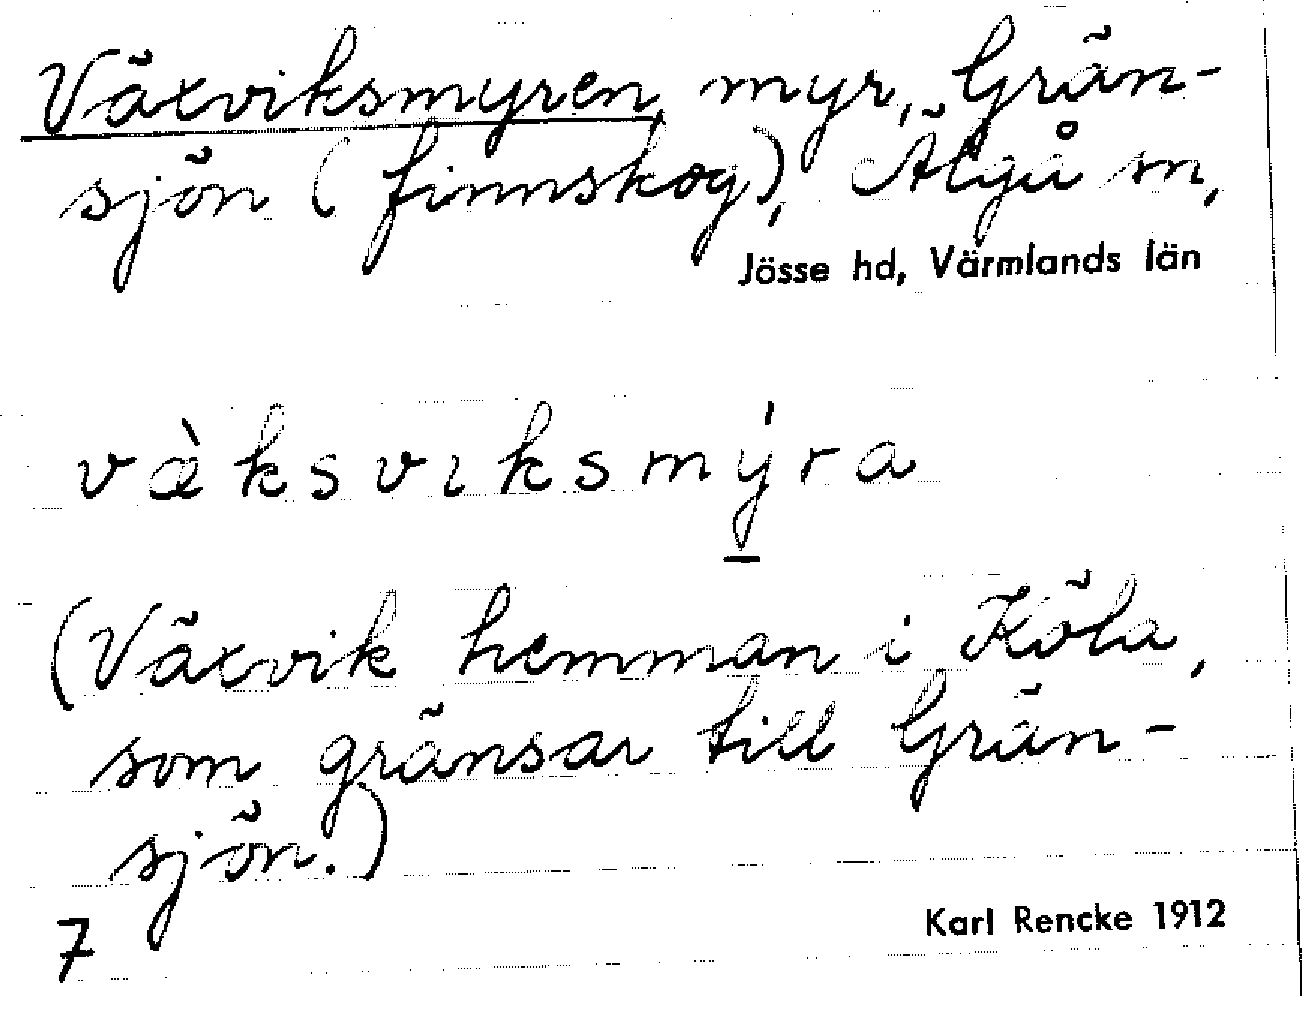 Växviksmyren, myr, Grän-
sjön (finnskog), Älgå sn,
Jösse hd, Värmlands län
væ̀ksvıksmý̱ra
(Växvik hemman i Köla,
som gränsar till Grän-
sjön.)
7
Karl Rencke 1912